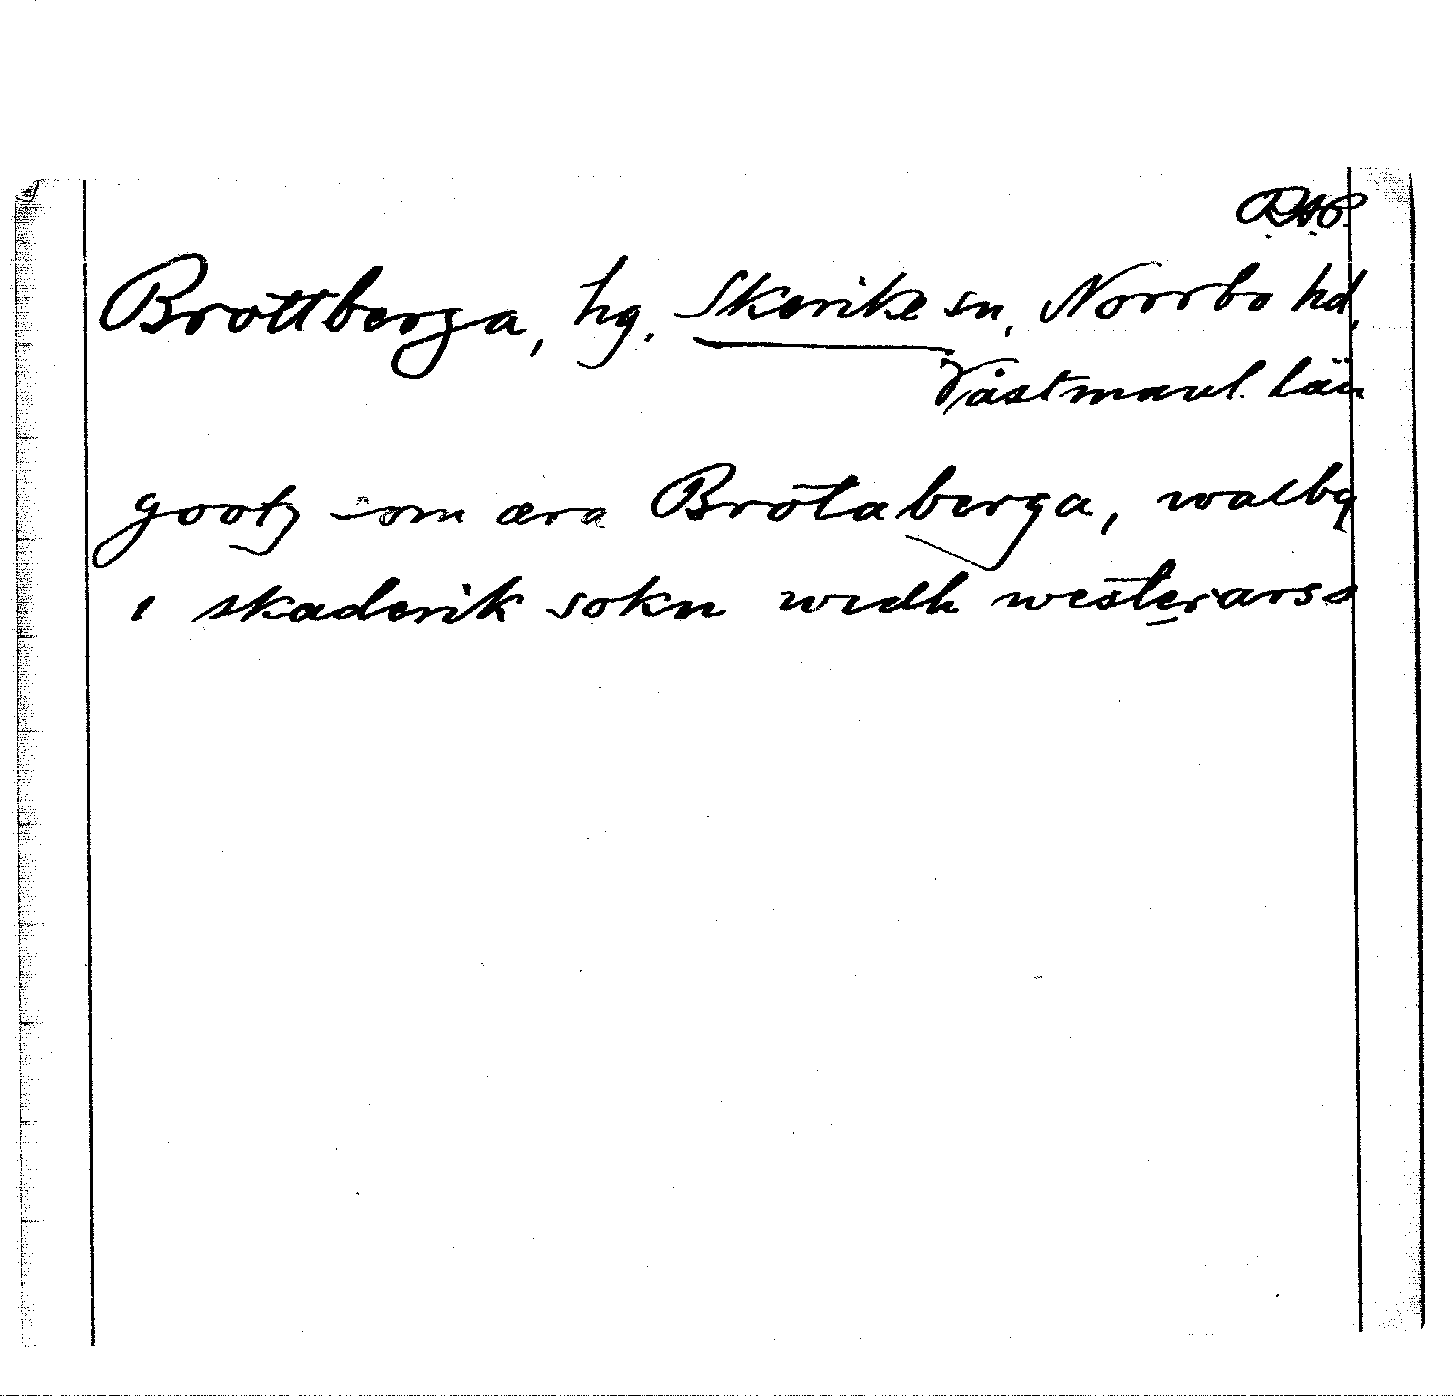 Brottberga, hg. Skerike sn, Norrbo hd,
Västmanl. län
gootz som æra Brotaberga, walby
i skaderik sokn widh westerarss